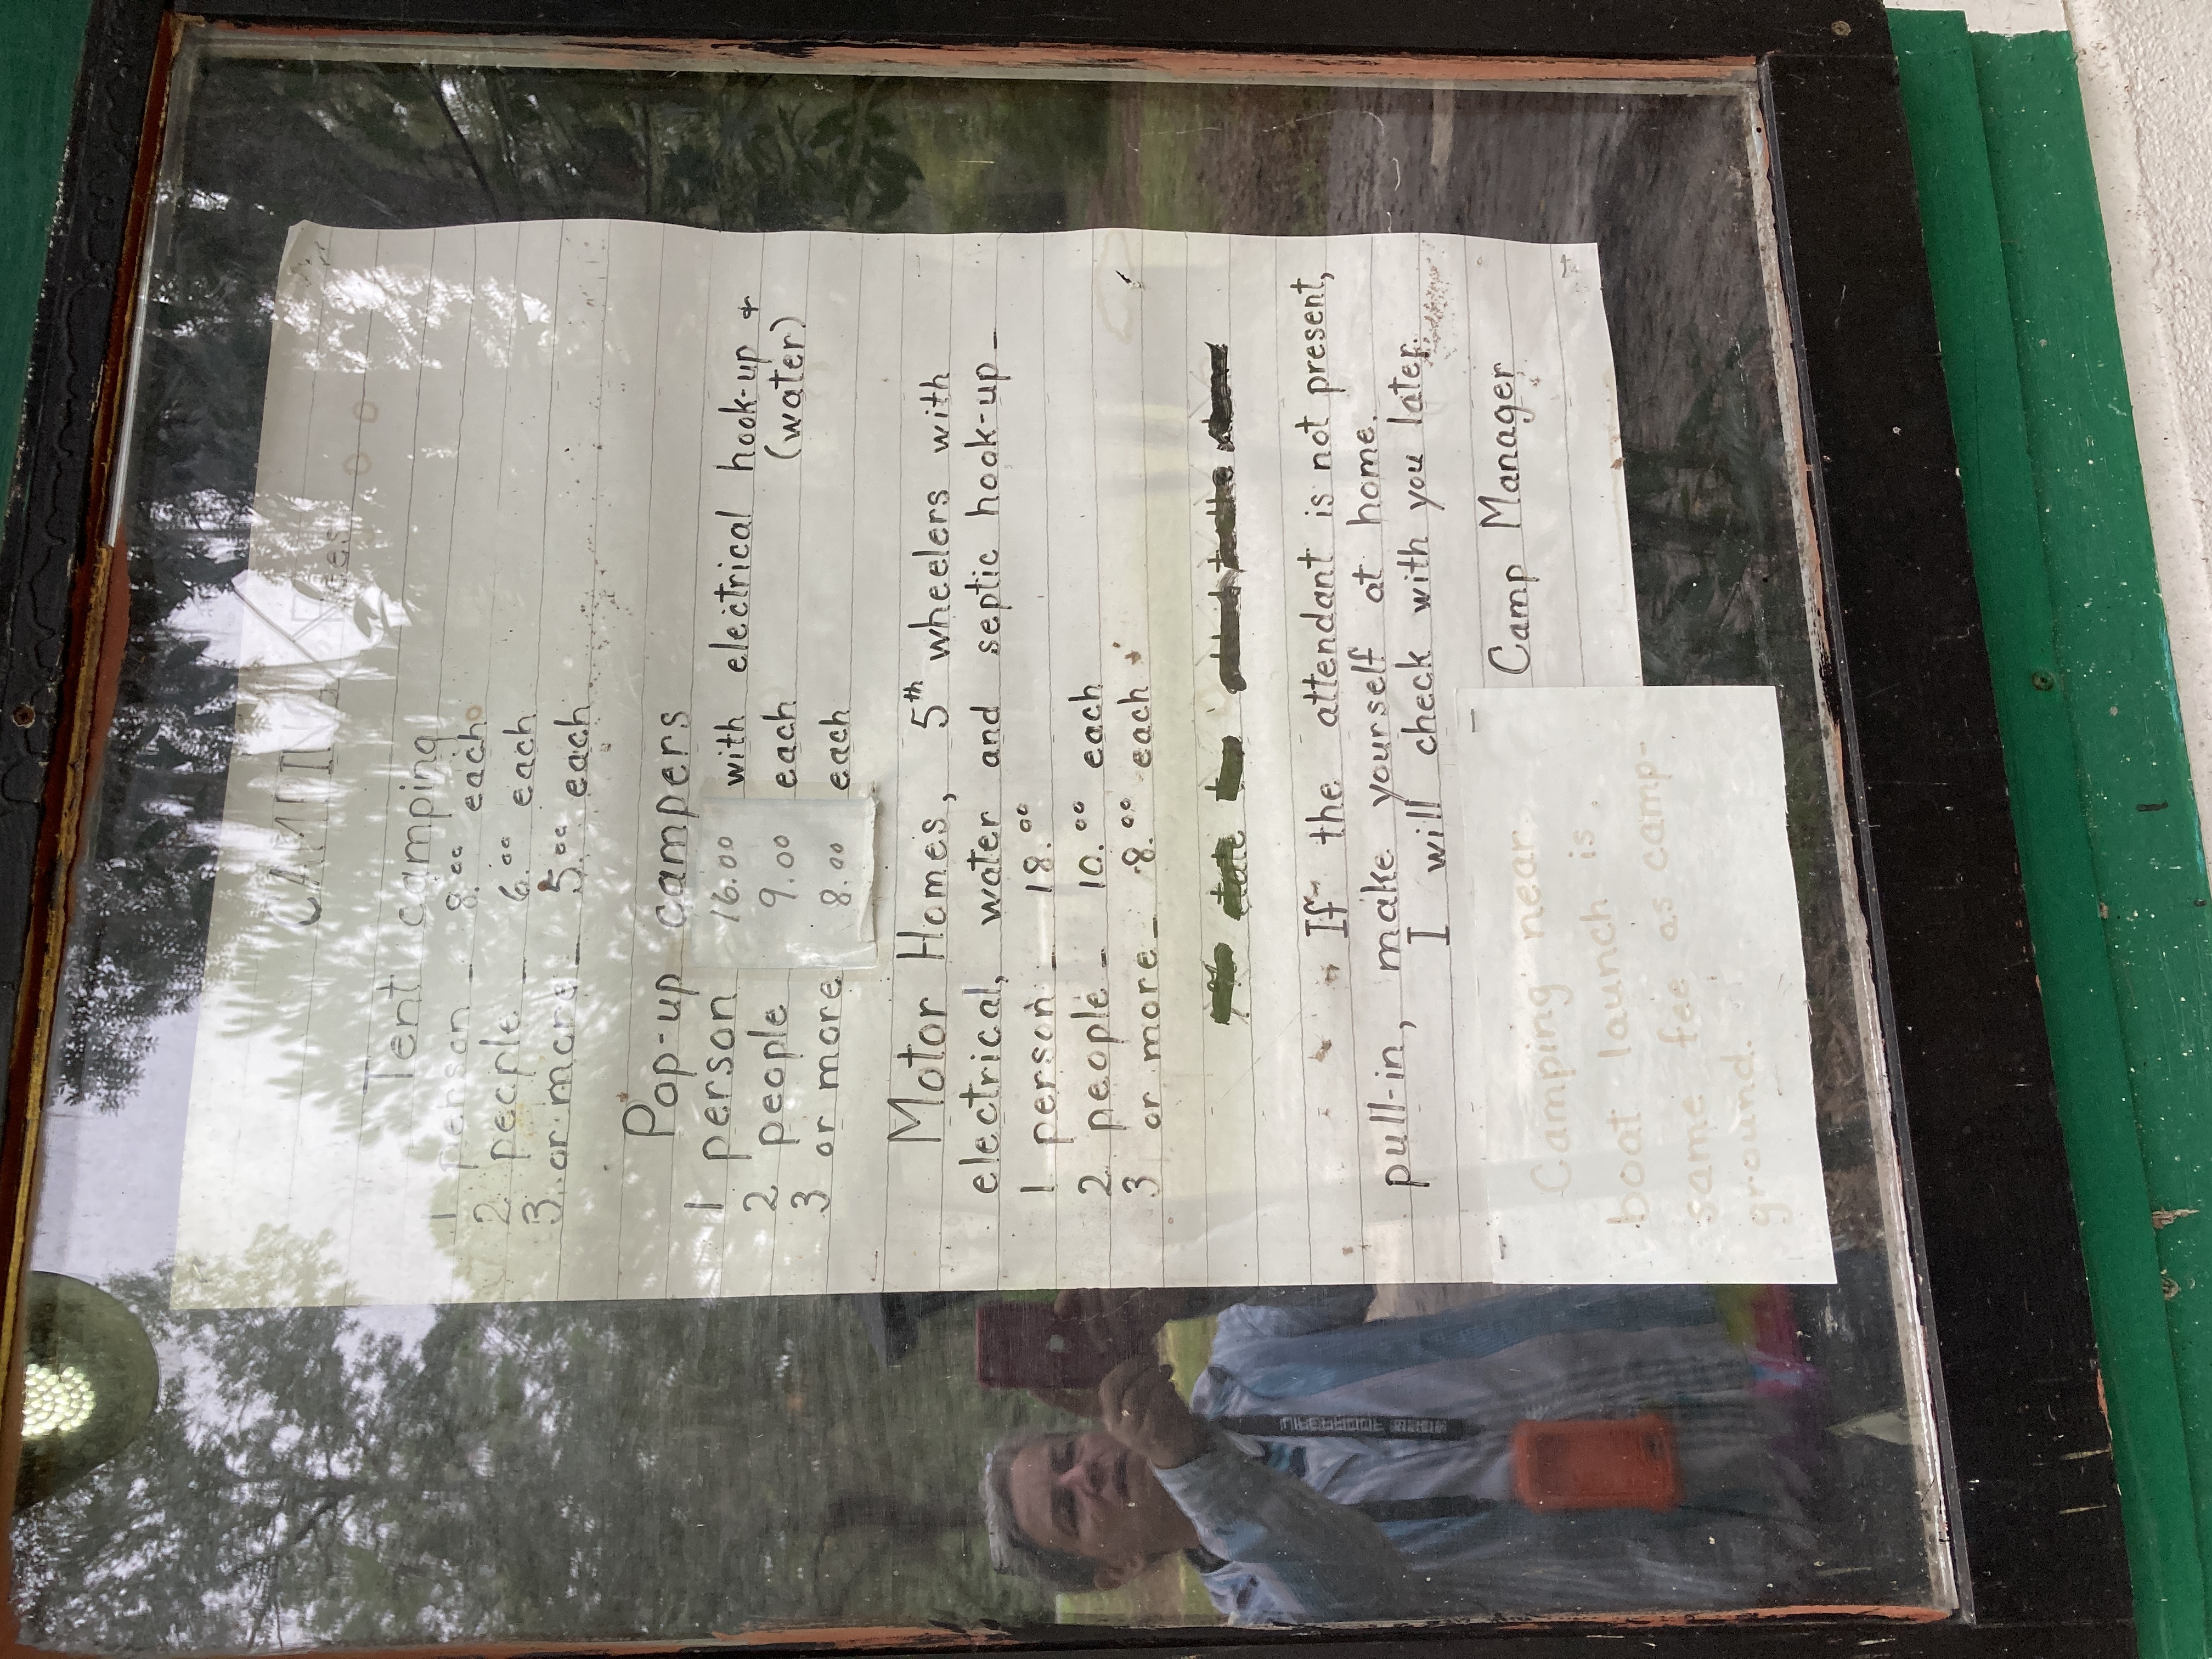 Tent camping
1 person - 8.00 each
2 people - 6.00 each
3 or more - 5.00 each
Pop-up campers
1 person 16.00 with electrical hook-up +
2 people 9.00 each (water)
3 or more 8.00 each
Motor Homes, 5th wheelers with
electrical, water and septic hook-up -
1 person - 18.00
2 people - 10.00 each
3 or more - 8.00 each
If the attendant is not present,
pull-in, make yourself at home.
I will check with you later.
Camp Manager
Camping near
boat launch is
same fee as camp-
ground.